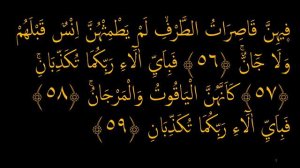 فِيهِنَّ قَاصِرَاتُ الطَّرْفِ لَمْ يَطْمِثْهُنَّ إِنْسٌ قَبْلَهُمْ
وَلَا جَآنٌّ ﴿٥٦﴾ فَبِأَيِّ آلَاءِ رَبِّكُمَا تُكَذِّبَانِ
﴿٥٧﴾ كَأَنَّهُنَّ الْيَاقُوتُ وَالْمَرْجَانُ ﴿٥٨﴾
فَبِأَيِّ آلَاءِ رَبِّكُمَا تُكَذِّبَانِ ﴿٥٩﴾